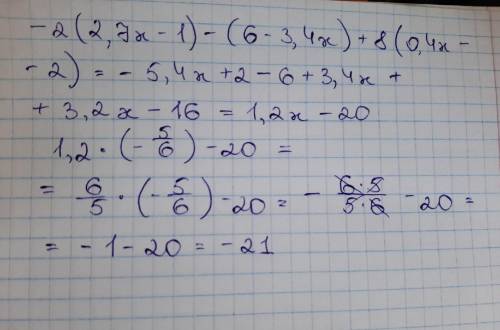 -2(2,7x-1)-(6-3,4x)+8(0,4x-
-2)=-5,4x+2-6+3,4x+
+3,2x-16=1,2x-20
1,2·(-5/6)-20=
=6/5·(-5/6)-20=-6·5/5·6-20=
=-1-20=-21